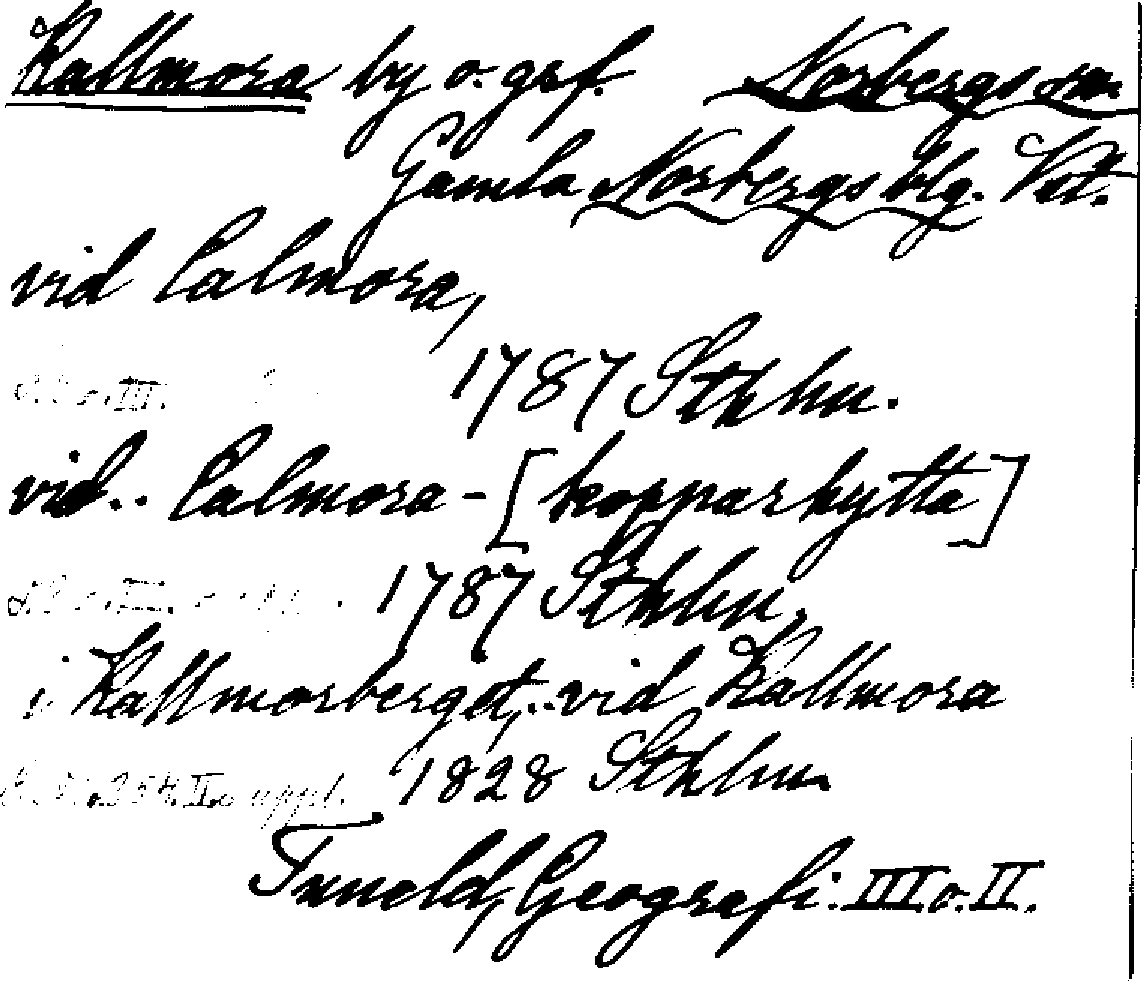 Kallmora by o. grf. Norbergs sn.
Gamla Norbergs blg. Vst.
vid Calmora,
1787 Sthlm.
vid.. Calmora-[kopparhytta]
1787 Sthlm.
i Kallmorberget,..vid Kallmora
1828 Sthlm
Tuneld, Geografi. III o. II.